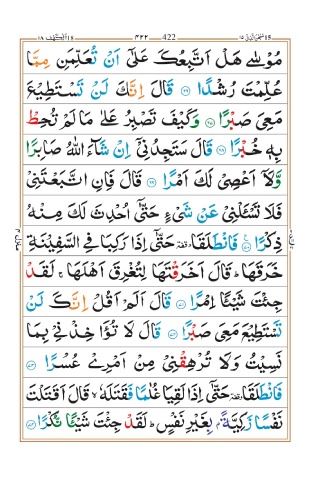 سبحن الذی ۱۵ 422 ۴۲۲ الکهف ۱۸
مُوۡسٰى هَلۡ اَتَّبِعُكَ عَلٰٓى اَنۡ تُعَلِّمَنِ مِمَّا
عُلِّمۡتَ رُشۡدًا ﴿۶۶﴾ قَالَ اِنَّكَ لَنۡ تَسۡتَطِيۡعَ
مَعِىَ صَبۡرًا ﴿۶۷﴾ وَكَيۡفَ تَصۡبِرُ عَلٰى مَا لَمۡ تُحِطۡ
بِهٖ خُبۡرًا ﴿۶۸﴾ قَالَ سَتَجِدُنِىۡۤ اِنۡ شَآءَ اللّٰهُ صَابِرًا
وَّلَاۤ اَعۡصِىۡ لَكَ اَمۡرًا ﴿۶۹﴾ قَالَ فَاِنِ اتَّبَعۡتَنِىۡ
فَلَا تَسۡـَٔلۡنِىۡ عَنۡ شَىۡءٍ حَتّٰٓى اُحۡدِثَ لَكَ مِنۡهُ
ذِكۡرًا ﴿۷۰﴾ فَانْطَلَقَا حَتّٰٓى اِذَا رَكِبَا فِى السَّفِيۡنَةِ
خَرَقَهَا ؕ قَالَ اَخَرَقۡتَهَا لِتُغۡرِقَ اَهۡلَهَا ۚ لَقَدۡ
جِئۡتَ شَيۡـًٔـا اِمۡرًا ﴿۷۱﴾ قَالَ اَلَمۡ اَقُلۡ اِنَّكَ لَنۡ
تَسۡتَطِيۡعَ مَعِىَ صَبۡرًا ﴿۷۲﴾ قَالَ لَا تُؤَاخِذۡنِىۡ بِمَا
نَسِيۡتُ وَلَا تُرۡهِقۡنِىۡ مِنۡ اَمۡرِىۡ عُسۡرًا ﴿۷۳﴾
فَانْطَلَقَا حَتّٰٓى اِذَا لَقِيَا غُلٰمًا فَقَتَلَهٗ ۙ قَالَ اَقَتَلۡتَ
نَفۡسًا زَكِيَّةًۢ بِغَيۡرِ نَفۡسٍ ؕ لَقَدۡ جِئۡتَ شَيۡـًٔـا نُّكۡرًا ﴿۷۴﴾